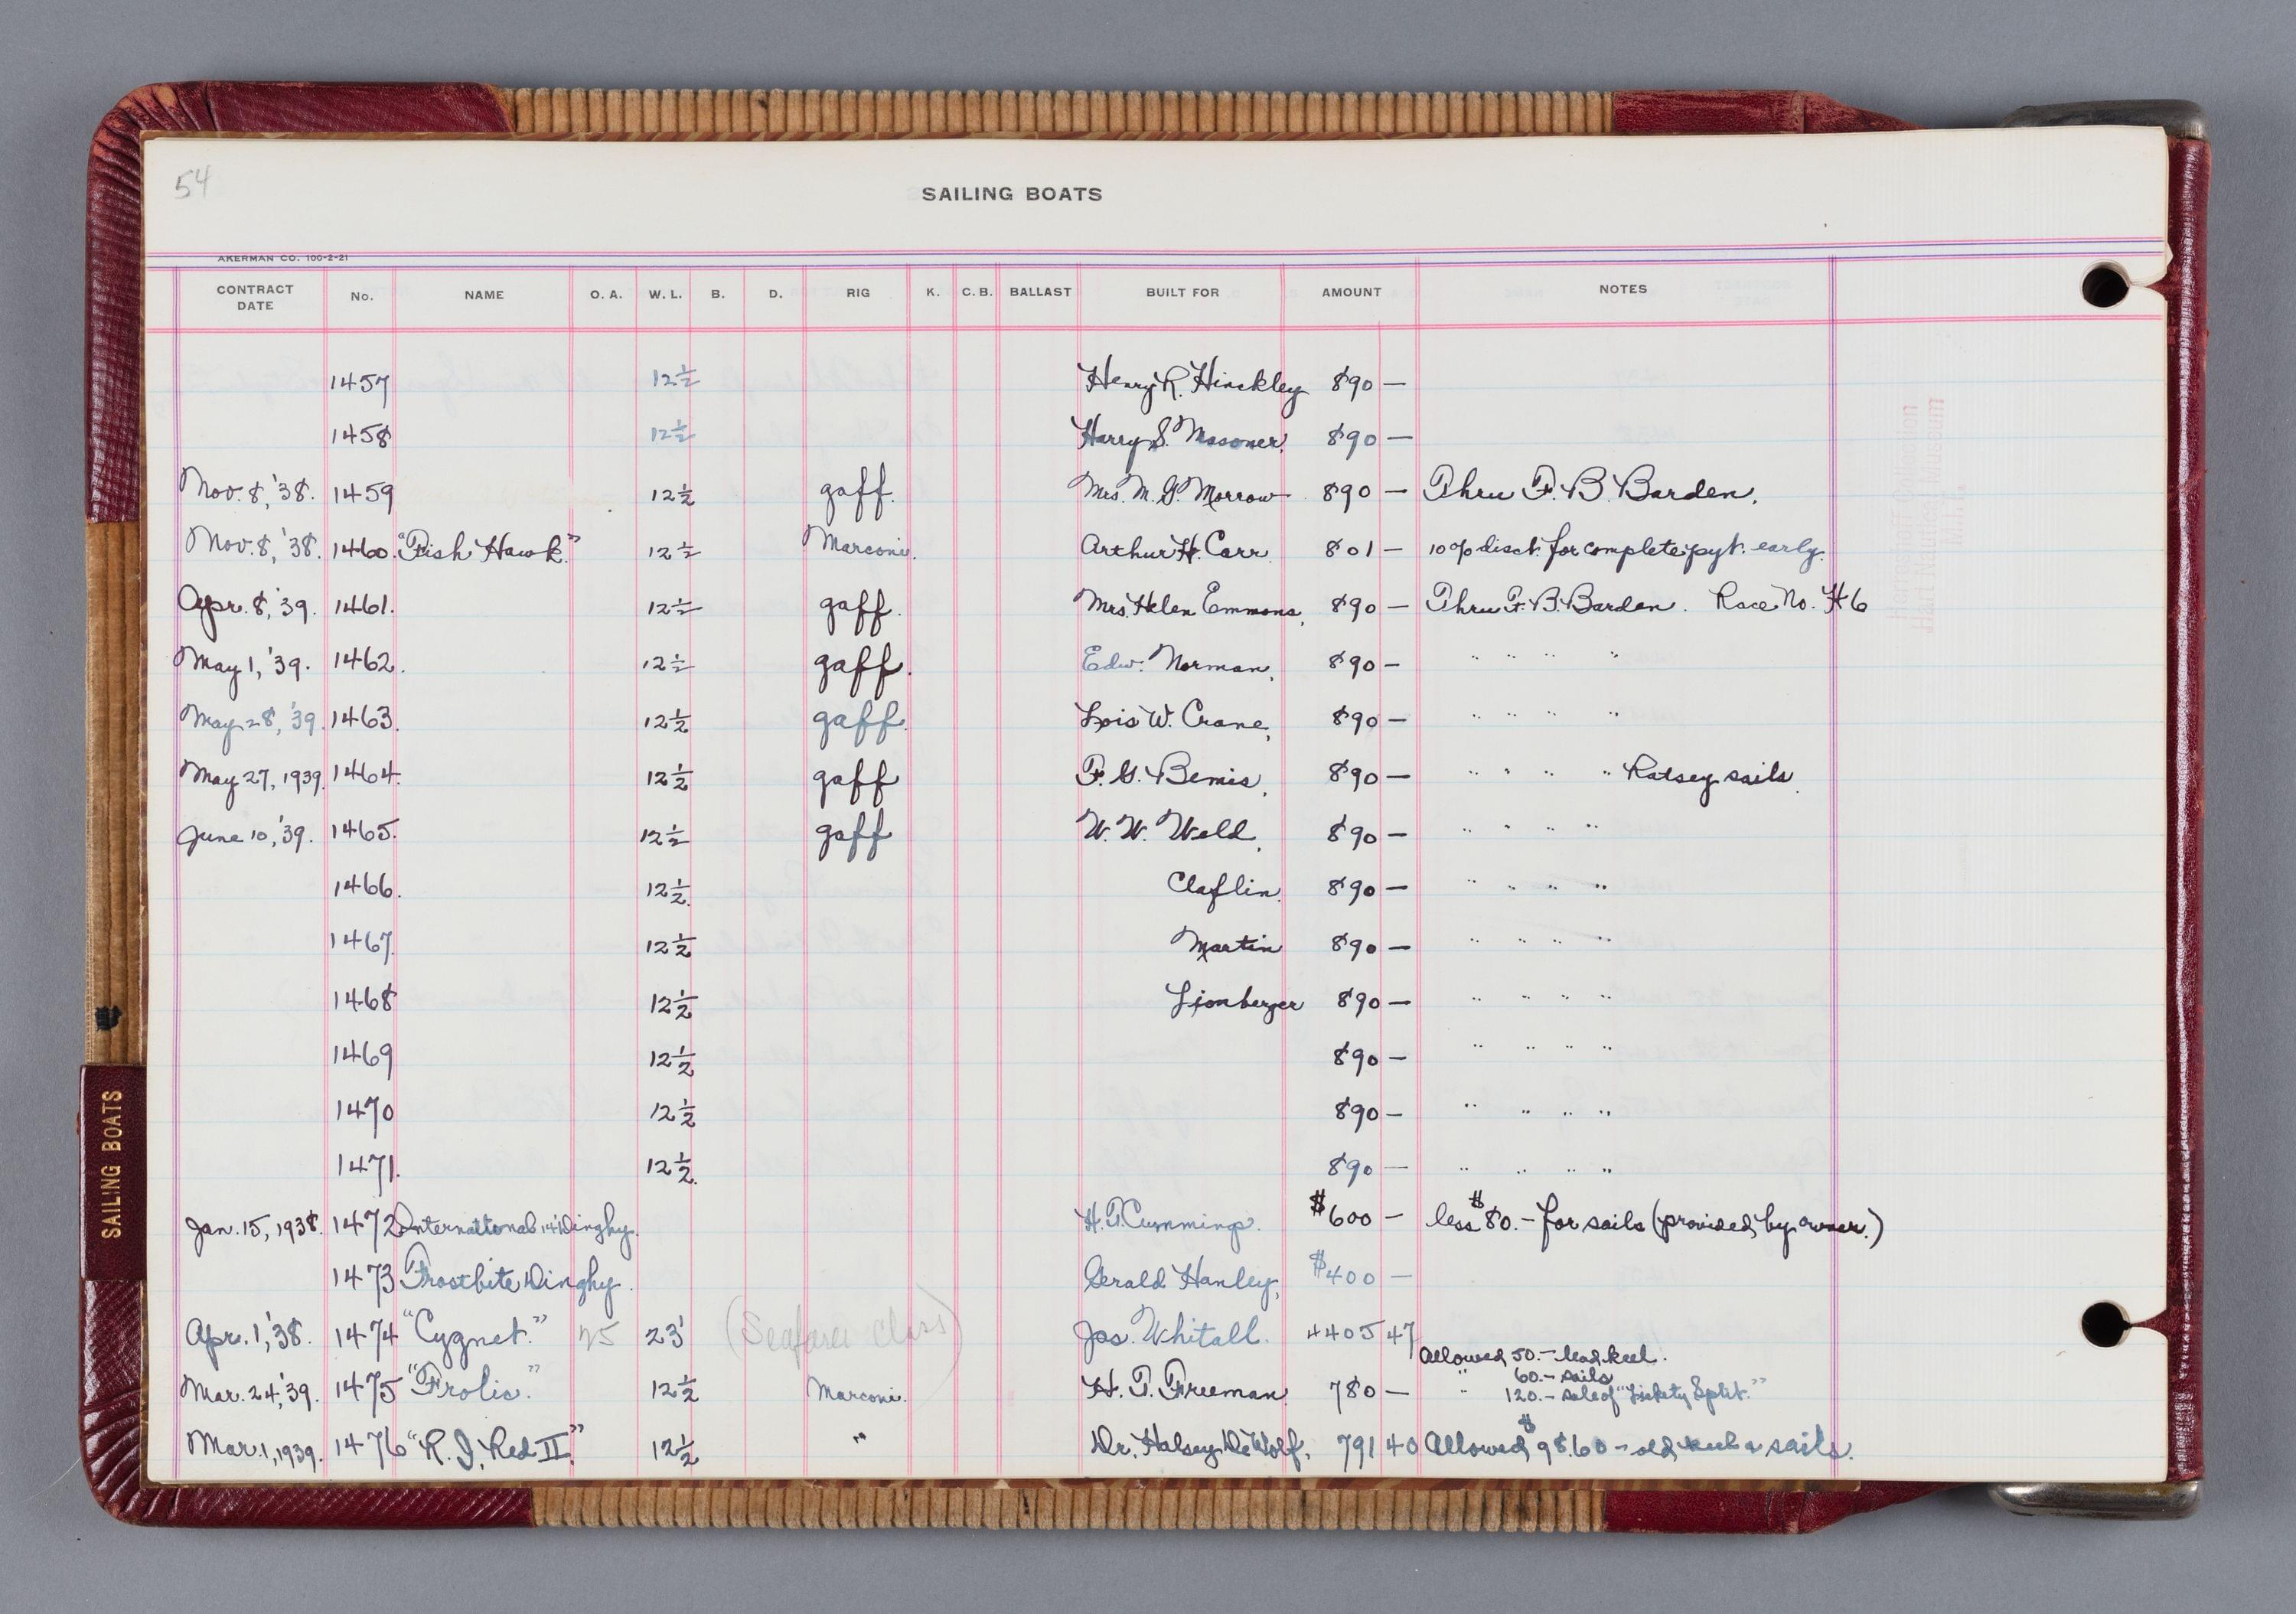 54
SAILING BOATS
AKERMAN CO. 100-2-21
CONTRACT DATE No. NAME O. A. W. L. B. D. RIG K. C. B. BALLAST BUILT FOR AMOUNT NOTES
1457 12 1/2 Henry R. Hinckley 890 —
1458 12 1/2 Harry S. 890 —
Nov. 8, '38. 1459 12 1/2 gaff. Mrs. M. G. Morrow 890 — Thru F. B. Barden.
Nov. 8, '38. 1460. "Fish Hawk." 12 1/2 Marconi. Arthur H. Carr 801 — 10% disct. for complete pyt. early.
Apr. 8, '39. 1461. 12 1/2 gaff. Mrs. Helen Emmons, 890 — Thru F. B. Barden. Race No. H 6
May 1, '39. 1462. 12 1/2 gaff. Edw. Norman, 890 — " " " "
May 28, '39. 1463. 12 1/2 gaff. Lois W. Crane, 890 — " " " "
May 27, 1939. 1464. 12 1/2 gaff F. G. Bemis, 890 — " " " " Ratsey sails.
June 10, '39. 1465. 12 1/2 gaff W. W. Weld, 890 — " " " "
1466. 12 1/2. Claflin. 890 — " " " "
1467. 12 1/2 Martin 890 — " " " "
1468 12 1/2 Lionberger 890 — " " " "
1469 12 1/2 890 — " " " "
1470 12 1/2 890 — " " " "
1471. 12 1/2. 890 — " " " "
Jan. 15, 1938. 1472 International 14' Dinghy. H. T. Cummings. $600 — less $80.- for sails (provided by owner.)
1473 Frostbite Dinghy. Gerald Hanley, $400 —
Apr. 1, '38. 1474 "Cygnet." 25 23' (Seafarer Class) Jos. Whitall. 4405 47
Allowed 50.- lead keel.
" 60.- sails
Mar. 24, '39. 1475 "Frolic." 12 1/2 Marconi. H. P. Freeman 780 — " 120.- sale of "Lickety Split."
Mar. 1, 1939. 1476 "R. I. Red II." 12 1/2 " Dr. Halsey DeWolf, 791 40 Allowed $98.60 - old keel & sails.
SAILING BOATS